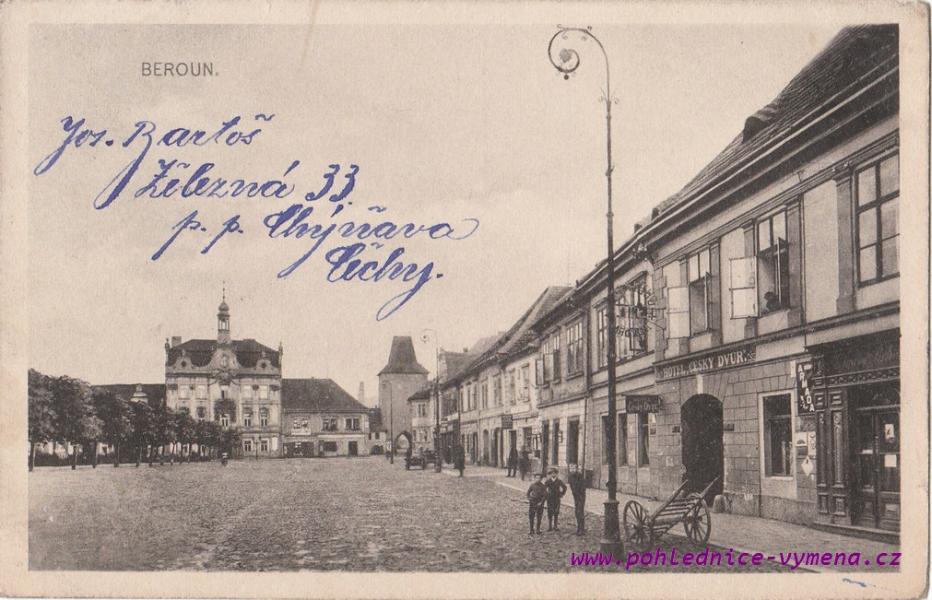 BEROUN.
Jos. Bartoš
Železná 33.
p. p. Chýňava
Čechy.
HOTEL ČESKÝ DVŮR.
www.pohlednice-vymena.cz